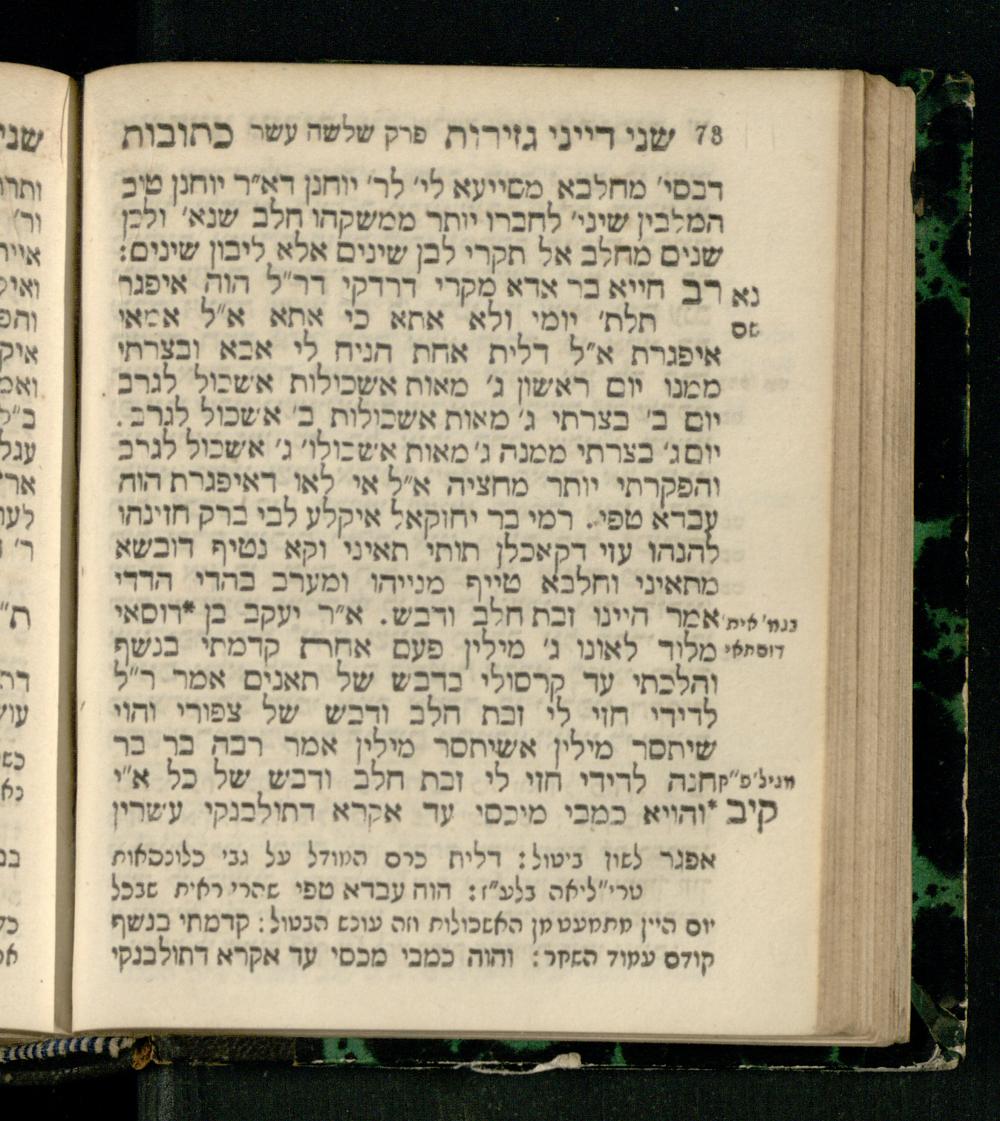 78 שני דייני גזירות פרק שלשה עשר כתובות
דבסי' מחלבא מסייעא לי' לר' יוחנן דא"ר יוחנן טיב
המלבין שיני' לחברו יותר ממשקהו חלב שנא' ולבן
שנים מחלב אל תקרי לבן שינים אלא ליבון שינים:
נא רב חייא בר אדא מקרי דרדקי דר"ל הוה איפגר
שם תלת' יומי ולא אתא כי אתא א"ל אמאי
איפגרת א"ל דלית אחת הניח לי אבא ובצרתי
ממנו יום ראשון ג' מאות אשכילות אשכול לגרב
יום ב' בצרתי ג' מאות אשכולות ב' אשכול לגרב.
יום ג' בצרתי ממנה ג' מאות אשכולו' ג' אשכול לגרב
והפקרתי יותר מחציה א"ל אי לאו דאיפגרת הוה
עברא טפי. רמי בר יחזקאל איקלע לבי ברק חזינהו
להנהו עזי דקאכלן תותי תאיני וקא נטיף דובשא
מתאיני וחלבא טייף מנייהו ומערב בהדי הדדי
בגמ' אית' אמר היינו זבת חלב ודבש. א"ר יעקב בן *דוסאי
דוסתאי מלוד לאונו ג' מילין פעם אחרת קדמתי בנשף
והלכתי עד קרסולי בדבש של תאנים אמר ר"ל
לדידי חזי לי זבת חלב ודבש של צפורי והוי
שיתסר מילין אשיתסר מילין אמר רבה בר בר
מגיל' פ"ק חנה לדידי חזי לי זבת חלב ודבש של כל א"י
קיב *והויא כמבי מיכסי עד אקרא דתולבנקי עשרין
אפגר לשון ביטול: דלית כרס המודל על גבי כלונסאות
טרי"ליאה בלע"ז: הוה עבדא טפי שהרי ראית שבכל
יום היין מתמעט מן האשכולות וזה עונש הבטול: קדמתי בנשף
קודם עמוד השחר: והוה כמבי מכסי עד אקרא דתולבנקי
שני
ותרו
ור')
אייר
ואיק
והפ
איק
ואמ
ב"ל
עגל
אר'
לעו
ר'
ת"
דת
עוש
כש